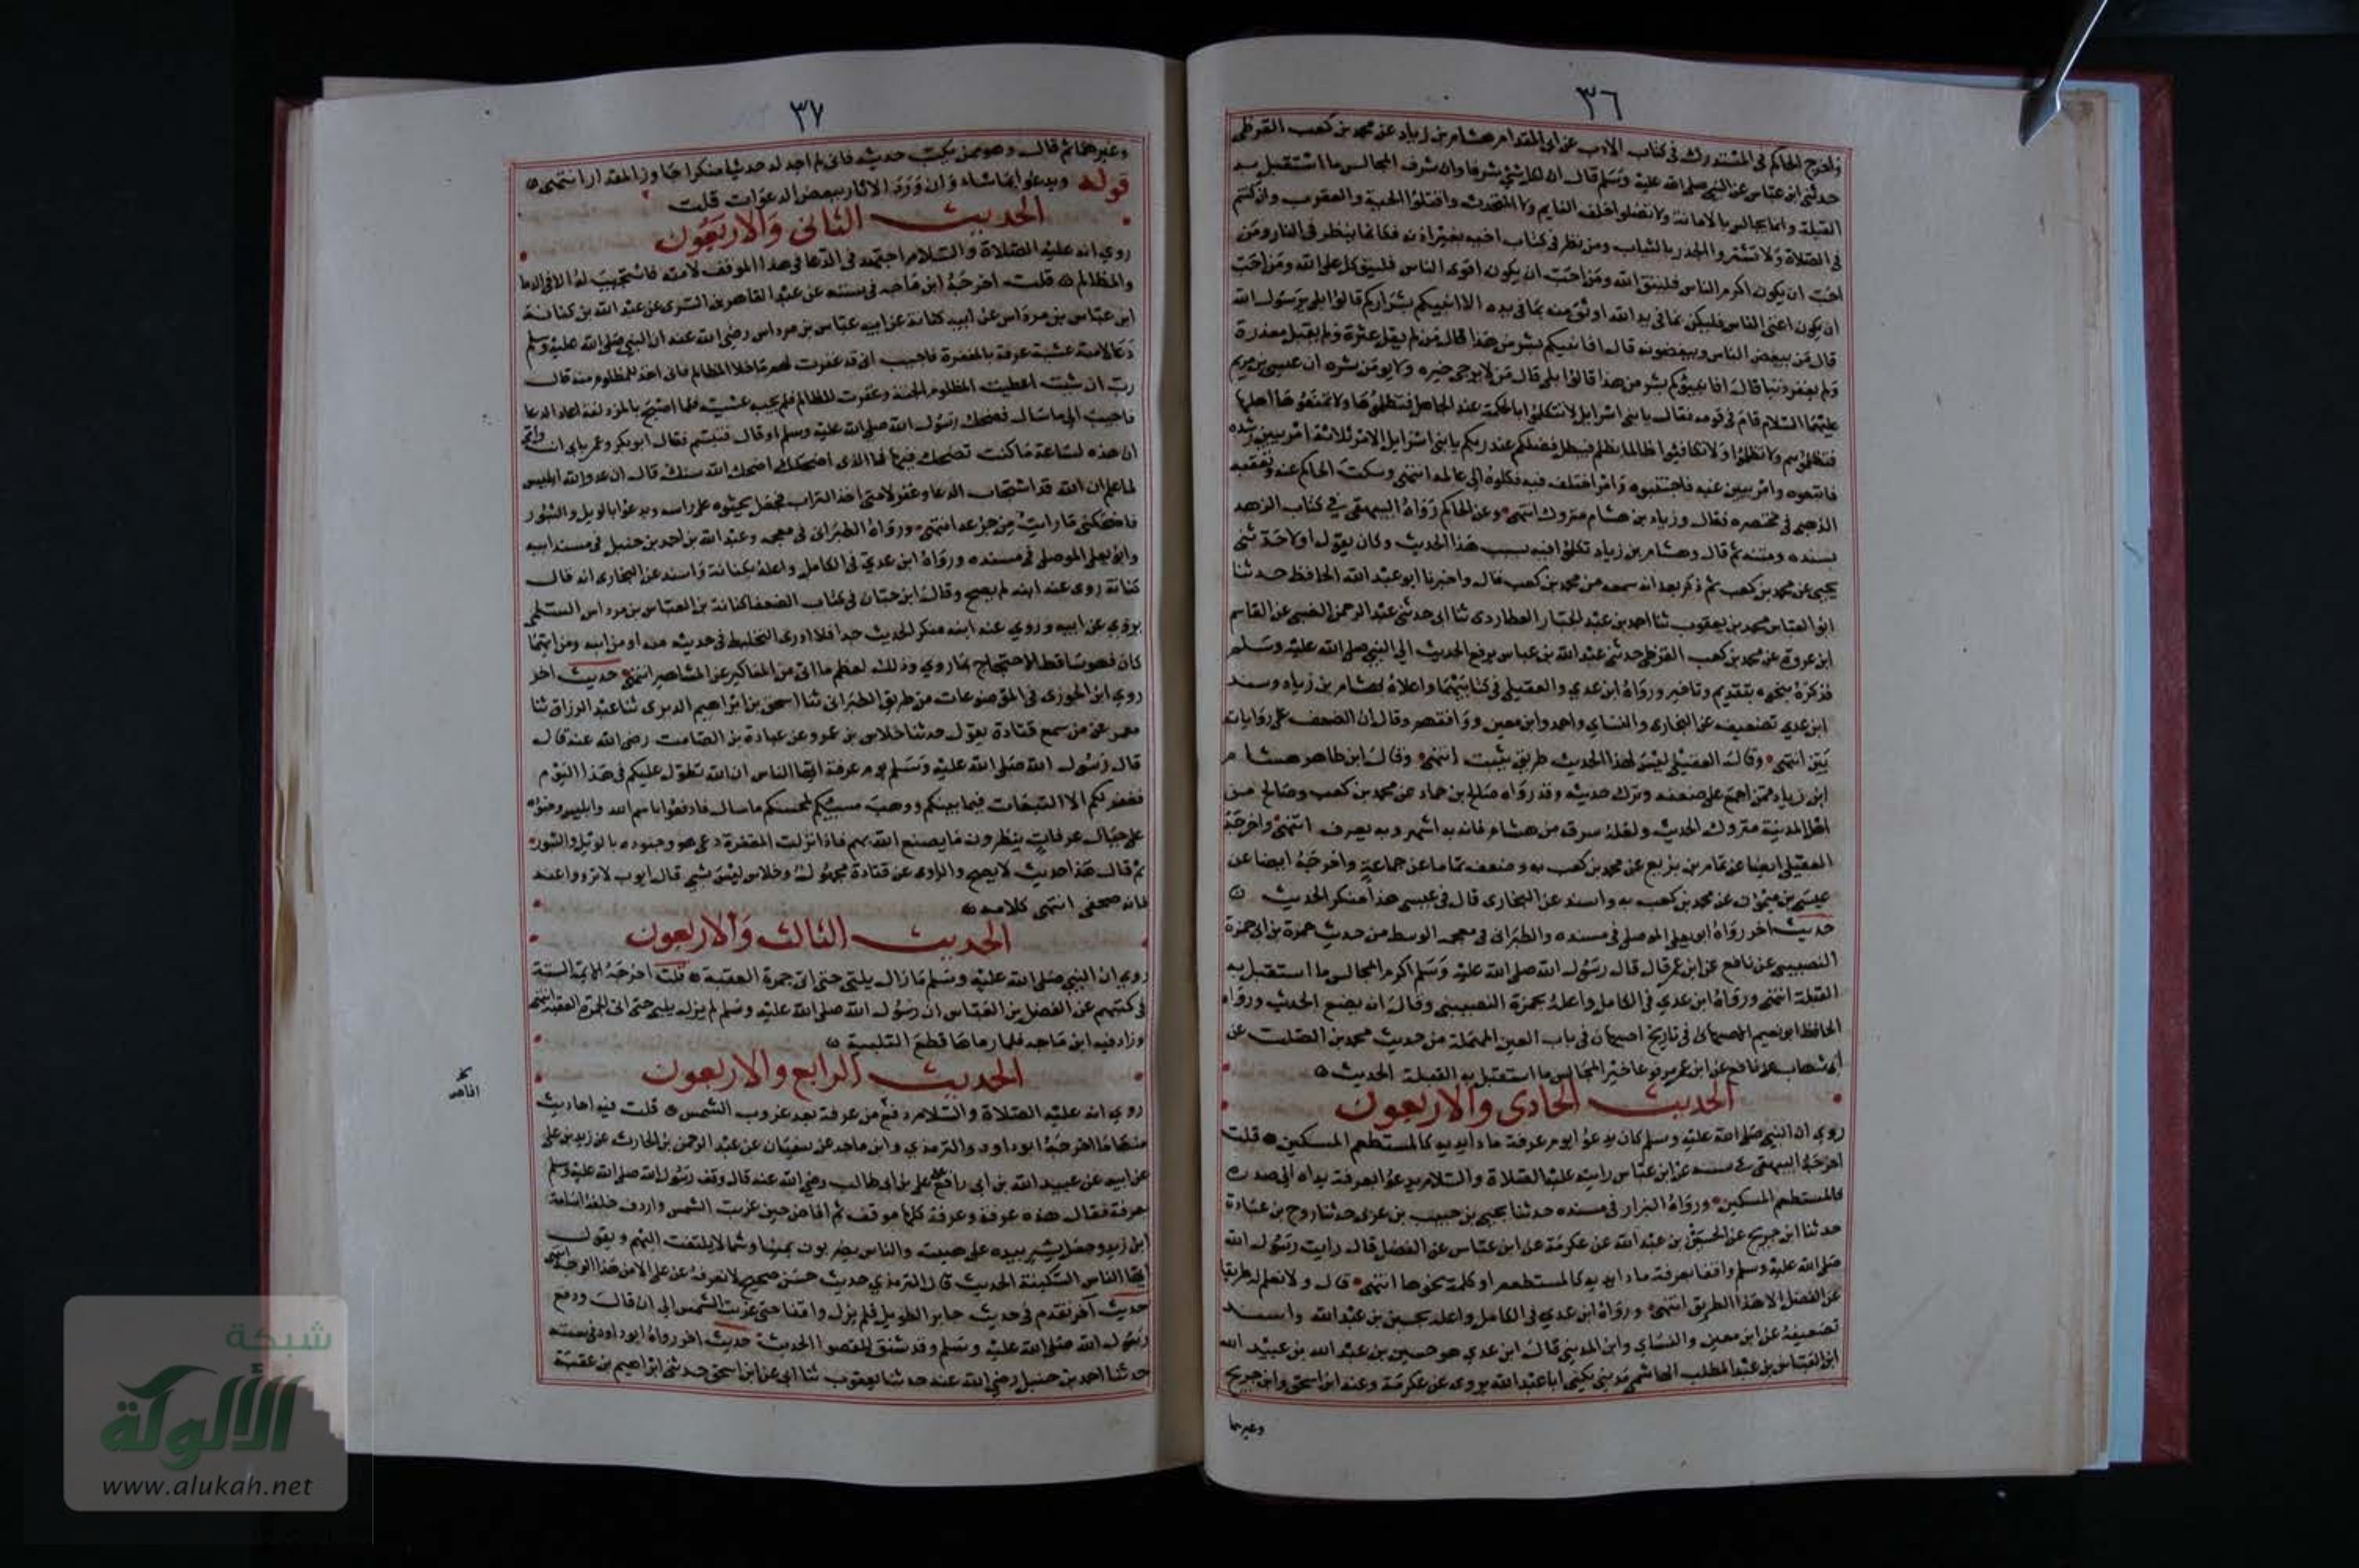 ٣٦
واخرج الحاكم في المستدرك في كتاب الادب عن ابي المقدام هشام بن زياد عن محمد بن كعب القرظي
حدثني ابن عباس عن النبي صلى الله عليه وسلم قال ان لكل شيء شرفا وان شرف المجالس ما استقبل به
القبلة وانما يجالس بالامانة ولا تصلوا خلف النايم ولا المتحدث واقتلوا الحية والعقرب وان كنتم
في الصلاة ولا تستروا الجدر بالثياب ومن نظر في كتاب اخيه بغير اذنه فكانما ينظر في النار ومن
احب ان يكون اكرم الناس فليتق الله ومن احب ان يكون اقوى الناس فليتوكل على الله ومن احب
ان يكون اغنى الناس فليكن بما في يد الله اوثق منه بما في يده الا انبيكم بشراركم قالوا بلى يرسول الله
قال من يبغض الناس ويبغضونه قال افانبيكم بشر من هذا قال من لم يقل عثرة ولم يقبل معذرة
ولم يغفر ذنبا قال افانبيكم بشر من هذا قالوا بلى قال من لا يرجى خيره ولا يومن شره ان عيسى بن مريم
عليهما السلام قام في قومه فقال يا بني اسرايل لا تتكلموا بالحكمة عند الجاهل فتظلموها ولا تمنعوها اهلها
فتظلموهم ولا تظلموا ولا تكافئوا ظالما بظلم فيبطل فضلكم عند ربكم يا بني اسرايل الامر ثلاثة امر بيين رشده
فاتبعوه وامر بيين غيه فاجتنبوه وامر اختلف فيه فكلوه الى عالمه انتهى وسكت الحاكم عنه وتعقبه
الذهبي في مختصره فقال وزياد بن هشام متروك انتهى وعن الحاكم رواه البيهقي في كتاب الزهد
بسنده ومتنه ثم قال وهشام بن زياد تكلموا فيه بسبب هذا الحديث وكان يقول اولا حدثني
يحيى عن محمد بن كعب ثم ذكر بعد انه سمعه من محمد بن كعب قال واخبرنا ابو عبد الله الحافظ حدثنا
ابو العباس محمد بن يعقوب ثنا احمد بن عبد الجبار العطاردي ثنا ابي حدثني عبد الرحمن الضبي عن القاسم
ابن عروة عن محمد بن كعب القرظي حدثني عبد الله بن عباس يرفع الحديث الى النبي صلى الله عليه وسلم
فذكره بنحوه بتقديم وتاخير ورواه ابن عدي والعقيلي في كتابيهما واعلاه بهشام بن زياد وسند
ابن عدي تضعيفه عن البخاري والنساي واحمد وابن معين ووافقهم وقال ان الضعف على رواياته
بين انتهى وقال العقيلي ليس لهذا الحديث طريق يثبت انتهى وقال ابن طاهر هشام
ابن زياد ممن اجمع على ضعفه وترك حديثه وقد رواه صالح بن حماد عن محمد بن كعب وصالح من
اهل المدينة متروك الحديث ولعله سرقه من هشام فانه به اشهر وبه يعرف انتهى واخرجه
العقيلي ايضا عن تمام بن بزيع عن محمد بن كعب به وضعف تماما عن جماعة واخرجه ايضا عن
عيسى بن ميمون عن محمد بن كعب به واسند عن البخاري قال في عيسى هذا منكر الحديث
حديث اخر رواه ابو يعلى الموصلي في مسنده والطبراني في معجمه الوسط من حديث حمزة بن ابي حمزة
النصيبي عن نافع عن ابن عمر قال قال رسول الله صلى الله عليه وسلم اكرم المجالس ما استقبل به
القبلة انتهى ورواه ابن عدي في الكامل واعله بحمزة النصيبي وقال انه يضع الحديث ورواه
الحافظ ابو نعيم الاصبهاني في تاريخ اصبهان في باب العين المهملة من حديث محمد بن الصلت عن
ابي شهاب عن نافع عن ابن عمر مرفوعا خير المجالس ما استقبل به القبلة الحديث
الحديث الحادي والاربعون
روي ان النبي صلى الله عليه وسلم كان يدعو يوم عرفة مادا يديه كالمستطعم المسكين قلت
اخرجه البيهقي في سننه عن ابن عباس رايت عليه الصلاة والسلام يدعو بعرفة يداه الى صدره
كالمستطعم المسكين ورواه البزار في مسنده حدثنا يحيى بن حبيب بن عربي حدثنا روح بن عبادة
حدثنا ابن جريج عن الحسين بن عبد الله عن عكرمة عن ابن عباس عن الفضل قال رايت رسول الله
صلى الله عليه وسلم واقفا بعرفة مادا يديه كالمستطعم او كلمة نحوها انتهى قال ولا نعلم له طريقا
عن الفضل الا هذا الطريق انتهى ورواه ابن عدي في الكامل واعله بحسين بن عبد الله واسند
تضعيفه عن ابن معين والنساي وابن المديني قال ابن عدي هو حسين بن عبد الله بن عبيد الله
ابن العباس بن عبد المطلب الهاشمي مديني يكنى ابا عبد الله يروي عن عكرمة وعنه ابن اسحق وابن جريج
وغيرهما
٣٧
وغيرهما ثم قال وهو ممن يكتب حديثه فاني لم اجد له حديثا منكرا جاوز المقدار انتهى
قوله ويدعو بما شاء وان ورد الاثار ببعض الدعوات قلت
الحديث الثاني والاربعون
روي انه عليه الصلاة والسلام اجتهد في الدعا في هذا الموقف لامته فاستجيب له الا في الدما
والمظالم قلت اخرجه ابن ماجه في سننه عن عبد القاهر بن السري عن عبد الله بن كنانة
ابن عباس بن مرداس عن ابيه كنانة عن ابيه عباس بن مرداس رضي الله عنه ان النبي صلى الله عليه وسلم
دعا لامته عشية عرفة بالمغفرة فاجيب اني قد غفرت لهم ما خلا المظالم فاني اخذ للمظلوم منه قال
رب ان شئت اعطيت المظلوم الجنة وغفرت للظالم فلم يجب عشيته فلما اصبح بالمزدلفة اعاد الدعا
فاجيب الى ما سال فضحك رسول الله صلى الله عليه وسلم او قال فتبسم فقال ابو بكر وعمر بابي انت وامي
ان هذه لساعة ما كنت تضحك فيها فما الذي اضحكك اضحك الله سنك قال ان عدو الله ابليس
لما علم ان الله قد استجاب الدعا وغفر لامتي اخذ التراب فجعل يحثوه على راسه ويدعوا بالويل والثبور
فاضحكني ما رايت من جزعه انتهى ورواه الطبراني في معجمه وعبد الله بن احمد بن حنبل في مسند ابيه
وابو يعلى الموصلي في مسنده ورواه ابن عدي في الكامل واعله بكنانة واسند عن البخاري انه قال
كنانة روى عنه ابنه لم يصح وقال ابن حبان في كتاب الضعفا كنانة بن العباس بن مرداس السلمي
يروي عن ابيه وروي عنه ابنه منكر الحديث جدا فلا ادرى التخليط في حديثه منه او من ابنه ومن ايهما
كان فهو ساقط الاحتجاج بما روي وذلك لعظم ما اتى من المناكير عن المشاهير انتهى حديث اخر
روي ابن الجوزي في الموضوعات من طريق الطبراني ثنا اسحق بن ابراهيم الدبري ثنا عبد الرزاق ثنا
معمر عن من سمع قتادة يقول حدثنا خلاس بن عمرو عن عبادة بن الصامت رضي الله عنه قال
قال رسول الله صلى الله عليه وسلم يوم عرفة ايها الناس ان الله تطول عليكم في هذا اليوم
فغفر لكم الا التبعات فيما بينكم ووهب مسيئكم لمحسنكم ما سال فادفعوا باسم الله وابليس وجنوده
على جبال عرفات ينظرون ما يصنع الله بهم فاذا نزلت المغفرة دعى هو وجنوده بالويل والثبور
ثم قال هذا حديث لا يصح والراوي عن قتادة مجهول وخلاس ليس بشي قال ايوب لا ترووا عنه
فانه صحفي انتهى كلامه
الحديث الثالث والاربعون
روي ان النبي صلى الله عليه وسلم ما زال يلبي حتى اتى جمرة العقبة قلت اخرجه الايمة الستة
في كتبهم عن الفضل بن العباس ان رسول الله صلى الله عليه وسلم لم يزل يلبي حتى اتى الجمرة العقبة انتهى
وزاد فيه ابن ماجه فلما رماها قطع التلبية
الحديث الرابع والاربعون
روي انه عليه الصلاة والسلام دفع من عرفة بعد غروب الشمس قلت فيه احاديث
منها ما اخرجه ابو داود والترمذي وابن ماجه عن سفيان عن عبد الرحمن بن الحارث عن زيد بن علي
عن ابيه عن عبيد الله بن ابي رافع عن علي بن ابي طالب رضي الله عنه قال وقف رسول الله صلى الله عليه وسلم
بعرفة فقال هذه عرفة وعرفة كلها موقف ثم افاض حين غربت الشمس واردف خلفه اسامة
ابن زيد وجعل يشير بيده على هينته والناس يضربون يمينا وشمالا يلتفت اليهم ويقول
ايها الناس السكينة الحديث قال الترمذي حديث حسن صحيح لا نعرفه عن علي الا من هذا الوجه انتهى
حديث آخر تقدم في حديث جابر الطويل فلم يزل واقفا حتى غربت الشمس الى ان قال ودفع
رسول الله صلى الله عليه وسلم وقد شنق للقصوا الحديث حديث اخر رواه ابو داود في سننه
حدثنا احمد بن حنبل رضي الله عنه حدثنا يعقوب ثنا ابي عن ابن اسحق حدثني ابراهيم بن عقبة
شبكة
الألوكة
www.alukah.net